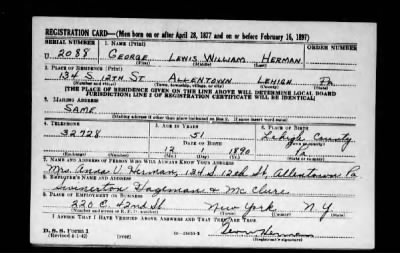 REGISTRATION CARD—(Men born on or after April 28, 1877 and on or before February 16, 1897)
SERIAL NUMBER
1. NAME (Print)
U 2088
GEORGE LEWIS WILLIAM HERMAN
(First) (Middle) (Last)
2. PLACE OF RESIDENCE (Print)
134 S. 12TH ST ALLENTOWN LEHIGH PA
(Number and street) (Town, township, village, or city) (County) (State)
[THE PLACE OF RESIDENCE GIVEN ON THE LINE ABOVE WILL DETERMINE LOCAL BOARD
JURISDICTION; LINE 2 OF REGISTRATION CERTIFICATE WILL BE IDENTICAL]
3. MAILING ADDRESS
SAME
[Mailing address if other than place indicated on line 2. If same insert word same]
4. TELEPHONE
5. AGE IN YEARS
6. PLACE OF BIRTH
32728
51
Lehigh County
DATE OF BIRTH
(Town or county)
12 1 1890
Pa
(Mo.) (Day) (Yr.)
(State or country)
7. NAME AND ADDRESS OF PERSON WHO WILL ALWAYS KNOW YOUR ADDRESS
Mrs. Anna V. Herman, 134 S. 12th St, Allentown Pa
8. EMPLOYER'S NAME AND ADDRESS
Swinerton Hageman & McClure
9. PLACE OF EMPLOYMENT OR BUSINESS
220 E. 42nd St. New York N.Y
(Number and street or R. F. D. number) (Town) (County) (State)
I AFFIRM THAT I HAVE VERIFIED ABOVE ANSWERS AND THAT THEY ARE TRUE
D. S. S. Form 1
(Revised 4-1-42) (over)
Herman
(Registrant's signature)